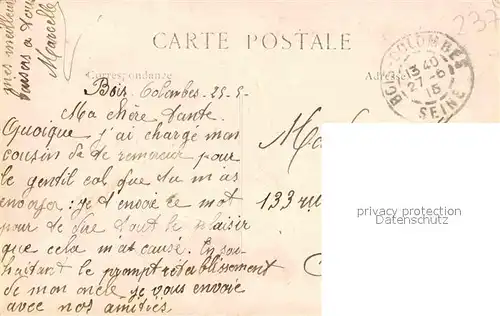 mes meilleurs
baisers à tous
Marcelle
CARTE POSTALE
Correspondance
Adresse
BOIS-COLOMBES
13 40
27-6
15
SEINE
Bois-Colombes - 25-5-
Ma chère Tante.
Quoique j'ai chargé mon
cousin de te remercier pour
le gentil col que tu m'as
envoyer : je t'envoie ce mot
pour te dire tout le plaisir
que cela m'a causé. En sou-
haitant le prompt rétablissement
de mon oncle je vous envoie
avec nos amitiés
133 ru
privacy protection
www.oldthing.com